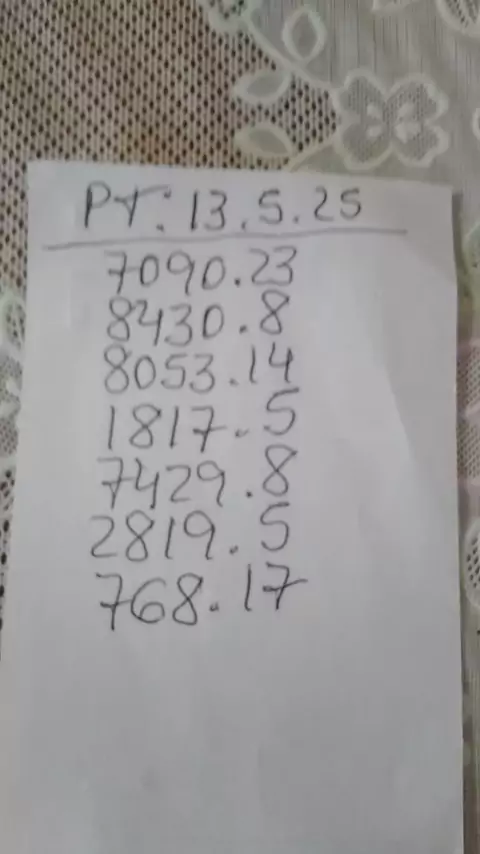 PT: 13.5.25
7090.23
8430.8
8053.14
1817.5
7429.8
2819.5
768.17